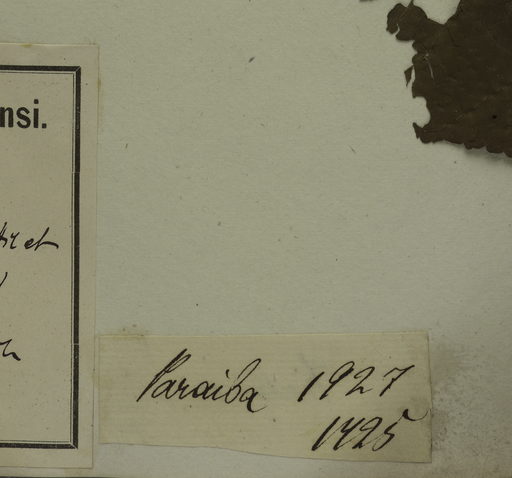 nsi.
Paraiba 1927
1425